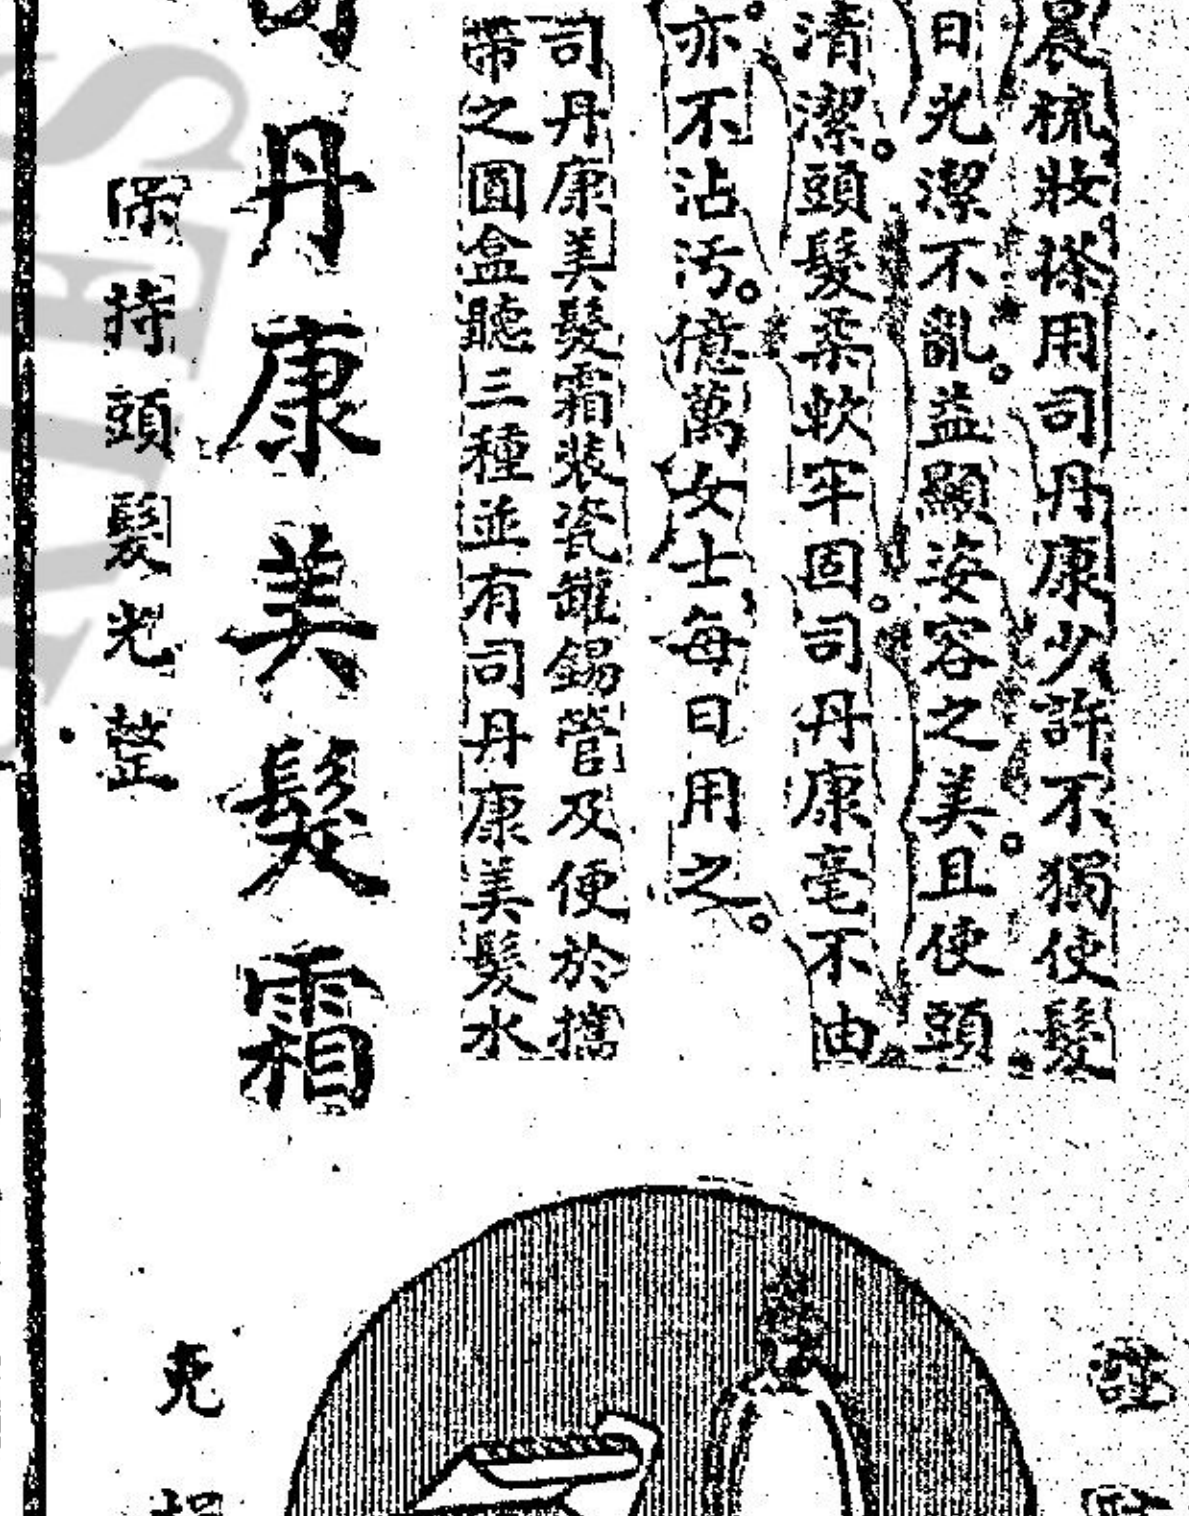 晨梳妝搽用司丹康少許不獨使髮
日光潔不亂。益顯姿容之美。且使頭
清潔。頭髮柔軟牢固。司丹康毫不油
亦不沾污。億萬女士每日用之。
司丹康美髮霜裝瓷罐錫管及便於攜
帶之圓盒聽三種並有司丹康美髮水
司丹康美髮霜
保持頭髮光整